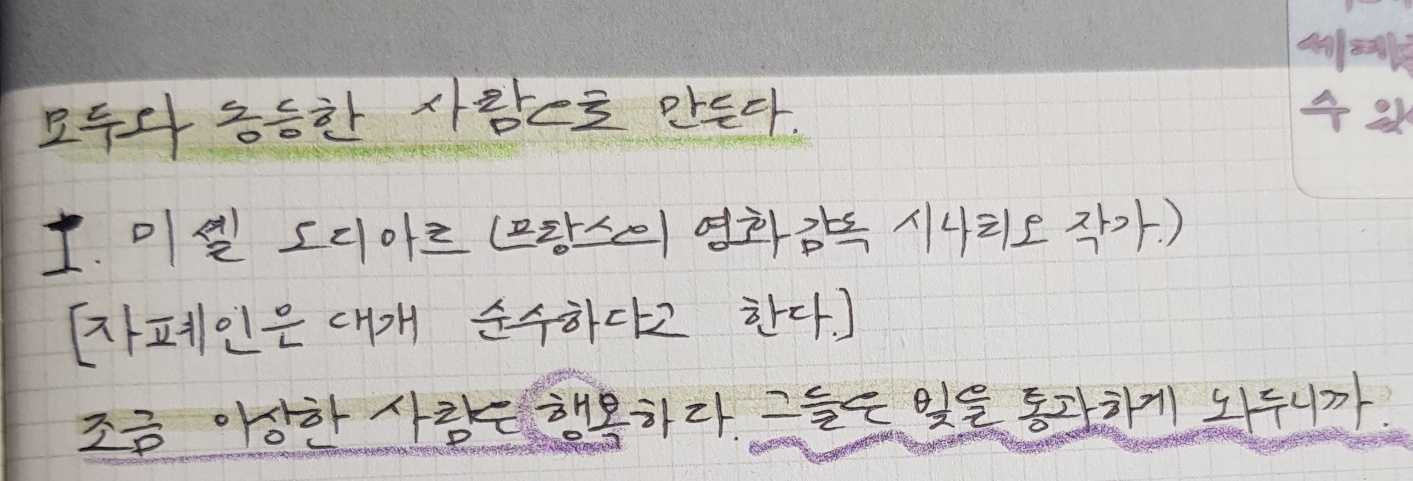 모두와 동등한 사람으로 만든다.
I. 미셸 오디아르 (프랑스의 영화감독 시나리오 작가.)
[자폐인은 대개 순수하다고 한다.]
조금 이상한 사람은 행복하다. 그들은 빛을 통과하게 놔두니까.
수 있